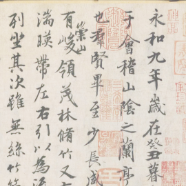 永和九年歲在癸丑暮
于會稽山陰之蘭亭
也羣賢畢至少長咸
有崇山峻領茂林脩竹又
湍暎帶左右引以為流
列坐其次雖無絲竹